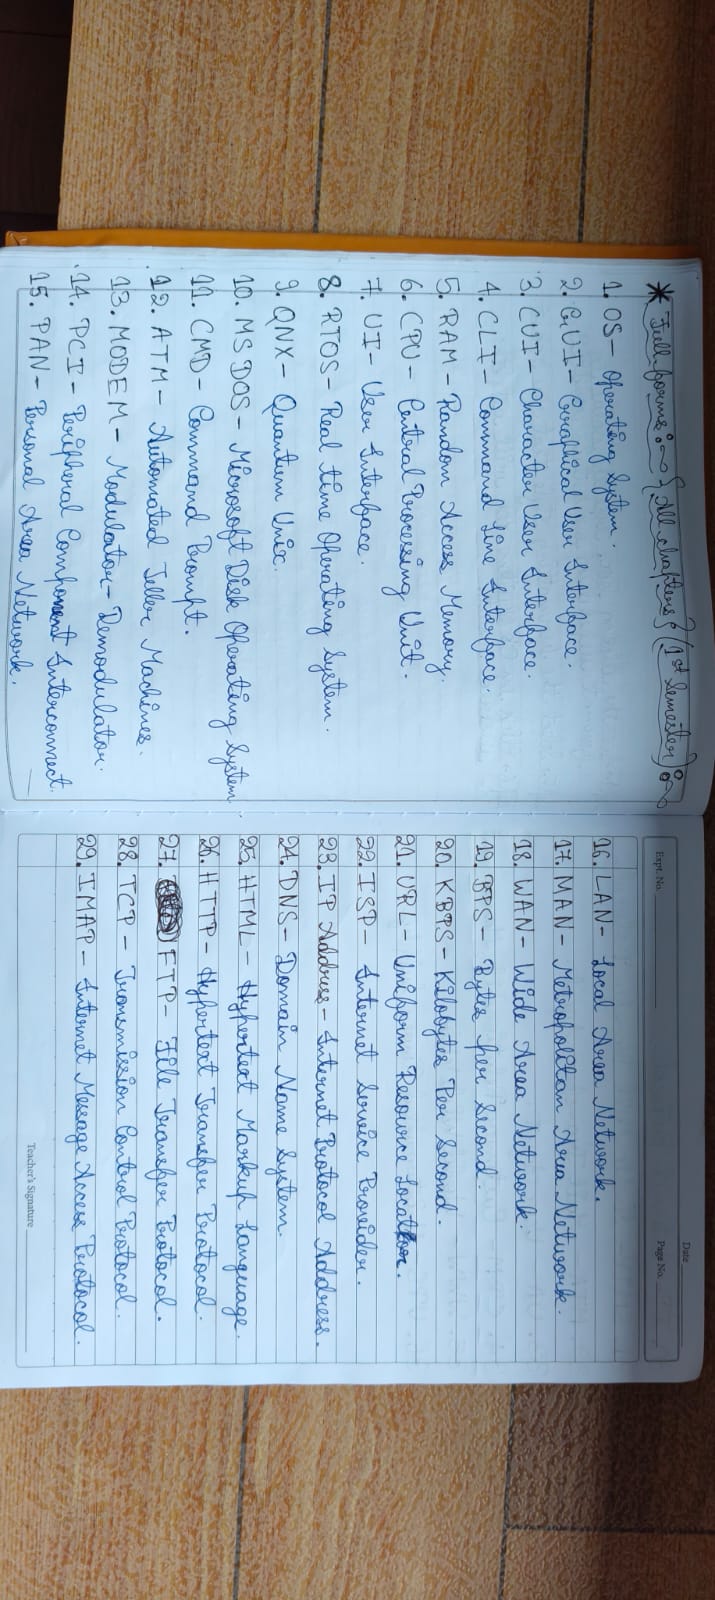 * Full forms:~ {All chapters} (1st Semester):~
1. OS- Operating System.
2. GUI- Graphical User Interface.
3. CUI- Character User Interface.
4. CLI- Command Line Interface.
5. RAM- Random Access Memory.
6. CPU- Central Processing Unit.
7. UI- User Interface.
8. RTOS- Real time Operating System.
9. QNX- Quantum Unix.
10. MS DOS- Microsoft Disk Operating System
11. CMD- Command Prompt.
12. ATM- Automated Teller Machines.
13. MODEM- Modulator-Demodulator.
14. PCI- Peripheral Component Interconnect.
15. PAN- Personal Area Network.
Date
Expt. No.
Page No.
16. LAN- Local Area Network.
17. MAN- Metropolitan Area Network.
18. WAN- Wide Area Network.
19. BPS- Bytes per Second.
20. KBPS- Kilobytes Per Second.
21. URL- Uniform Resource Locator.
22. ISP- Internet Service Provider.
23. IP Address- Internet Protocol Address.
24. DNS- Domain Name System.
25. HTML- Hypertext Markup Language.
26. HTTP- Hypertext Transfer Protocol.
27. FTP- File Transfer Protocol.
28. TCP- Transmission Control Protocol.
29. IMAP- Internet Message Access Protocol.
Teacher's Signature